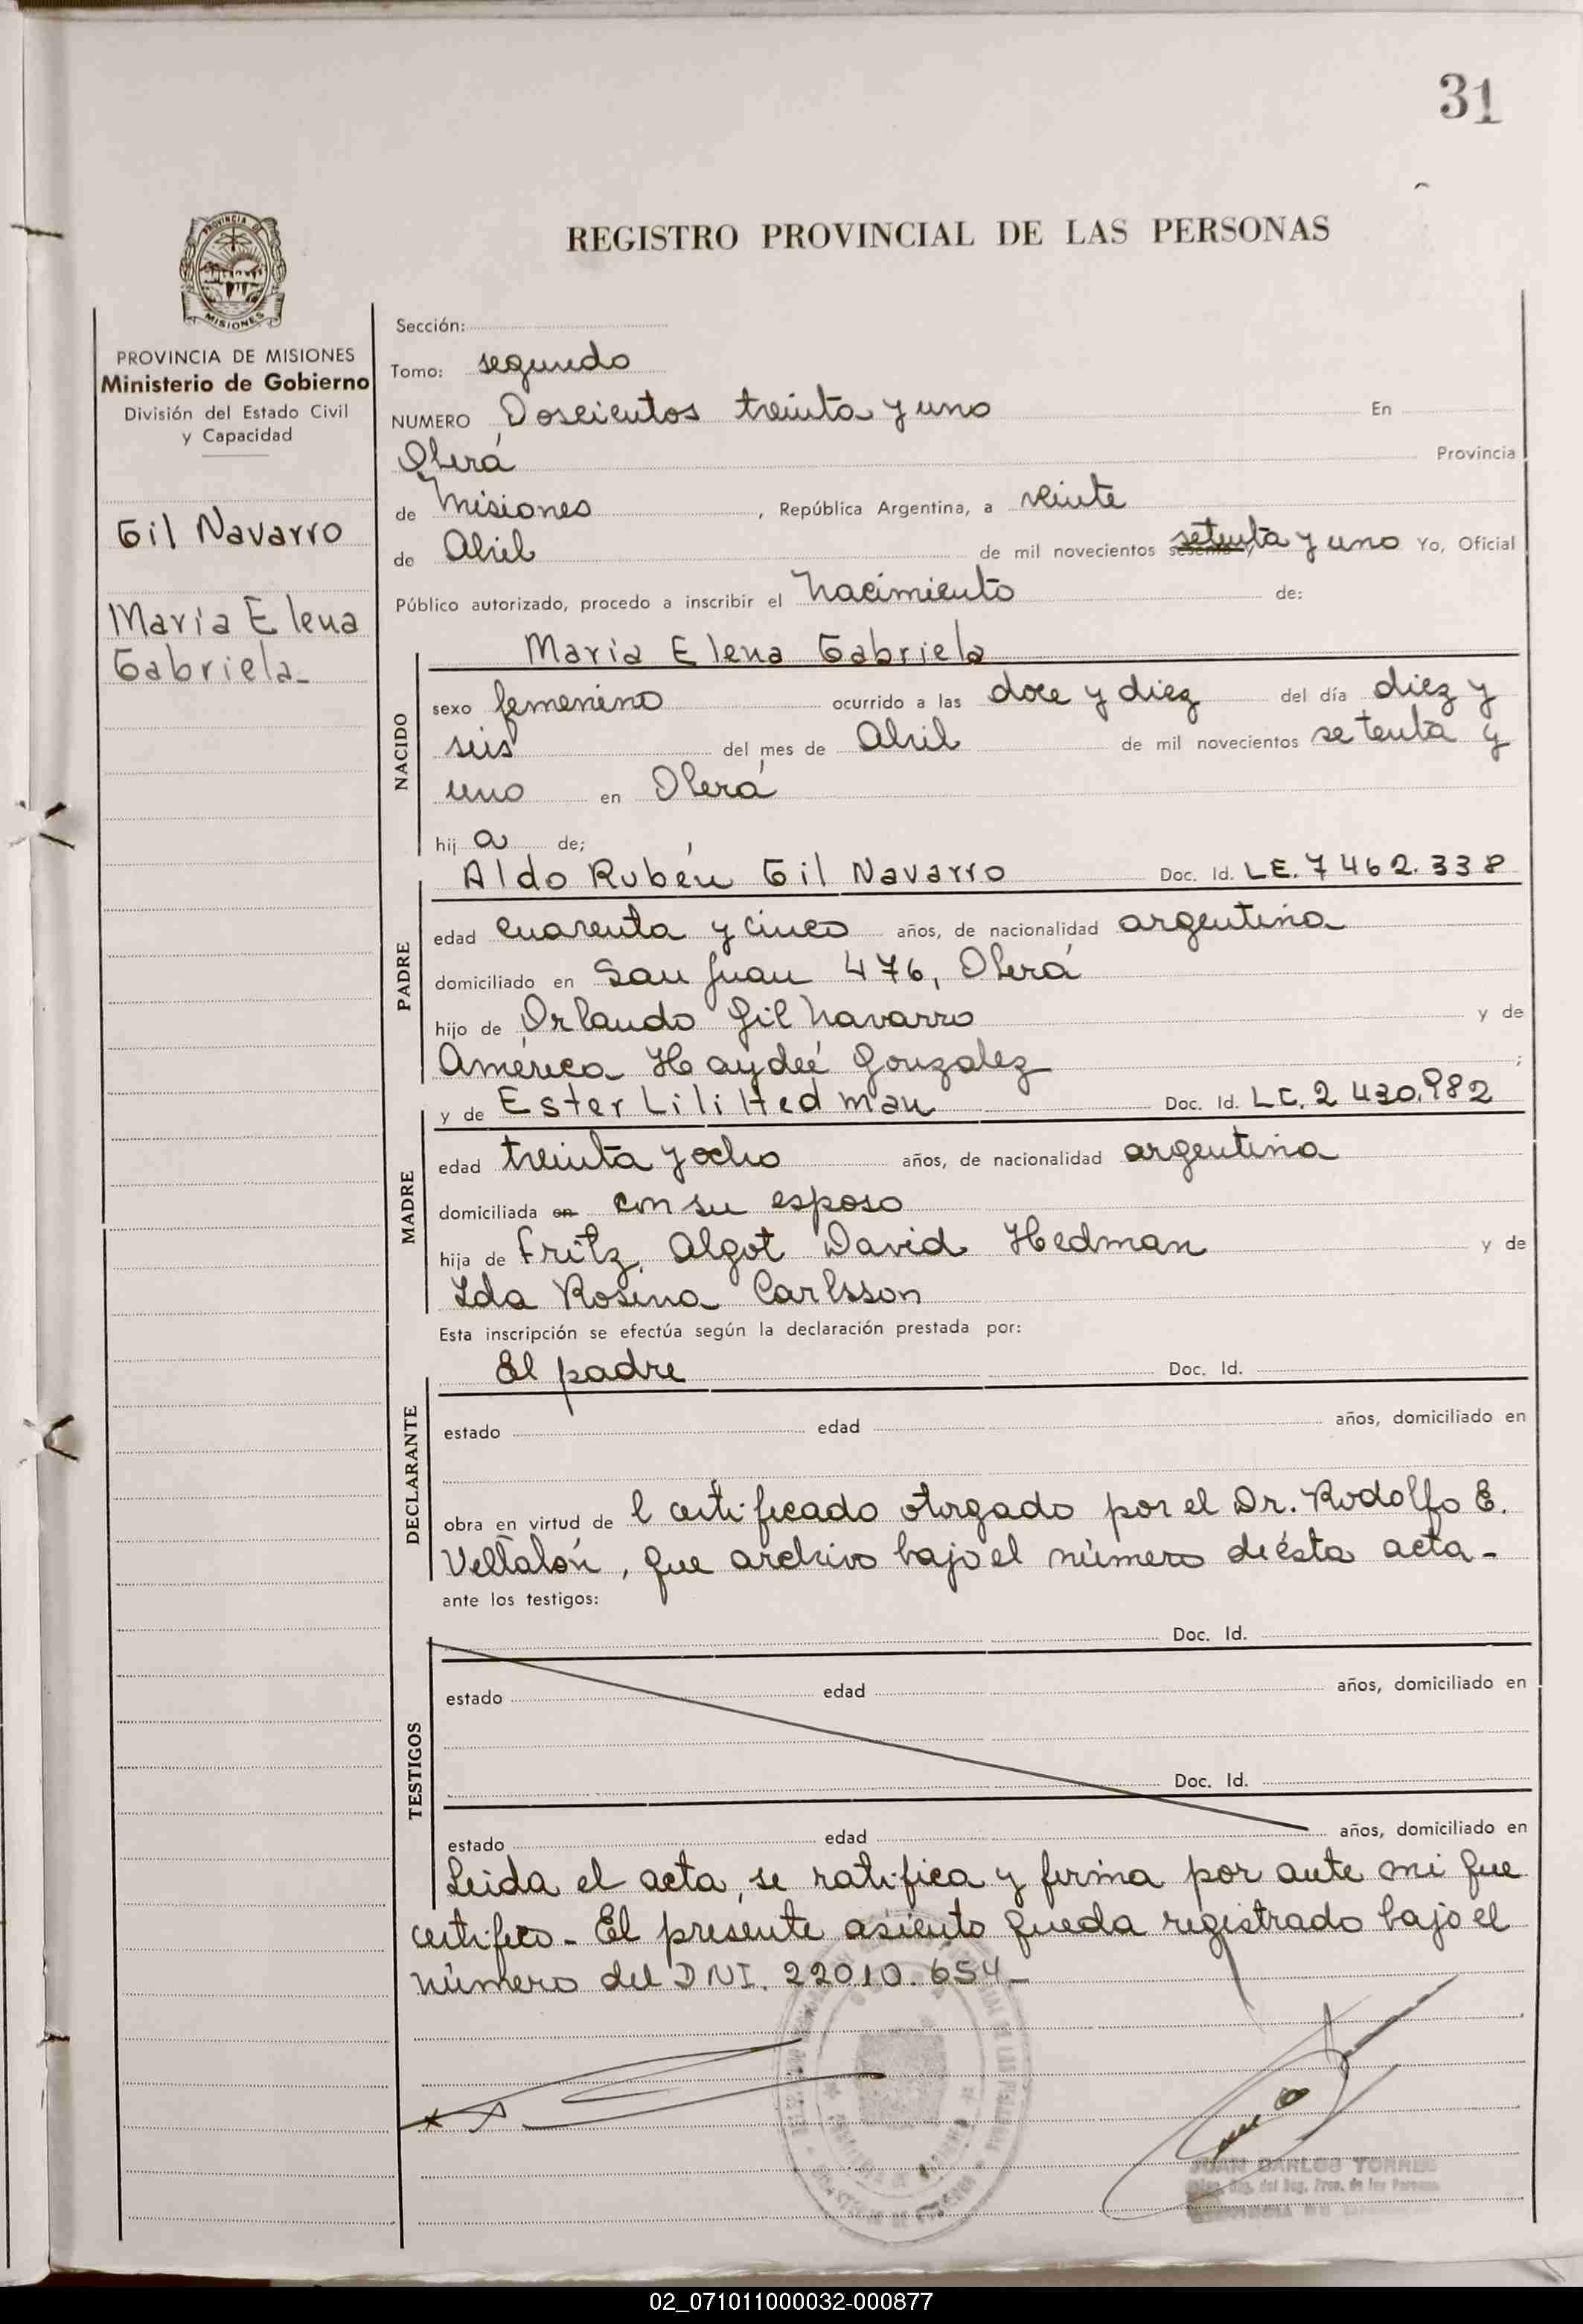 31
REGISTRO PROVINCIAL DE LAS PERSONAS
PROVINCIA DE
MISIONES
PROVINCIA DE MISIONES
Ministerio de Gobierno
División del Estado Civil
y Capacidad
Gil Navarro
María Elena
Gabriela-
Sección:
Tomo: segundo
NUMERO Doscientos treinta y uno En
Oberá Provincia
de Misiones, República Argentina, a veinte
de Abril de mil novecientos setenta y uno Yo, Oficial
Público autorizado, procedo a inscribir el Nacimiento de:
NACIDO
María Elena Gabriela
sexo femenino ocurrido a las doce y diez del día diez y
seis del mes de Abril de mil novecientos setenta y
uno en Oberá
hij a de;
PADRE
Aldo Rubén Gil Navarro Doc. Id. LE. 7462.338
edad cuarenta y cinco años, de nacionalidad argentina
domiciliado en San Juan 476, Oberá
hijo de Orlando Gil Navarro y de
América Haydeé Gonzalez ;
MADRE
y de Ester Lili Hedman Doc. Id. LC. 2 430.982
edad treinta y ocho años, de nacionalidad argentina
domiciliada en con su esposo
hija de Fritz Algot David Hedman y de
Ida Rosina Carlsson
Esta inscripción se efectúa según la declaración prestada por:
DECLARANTE
El padre Doc. Id.
estado edad años, domiciliado en
obra en virtud de l certificado otorgado por el Dr. Rodolfo E.
que archivo bajo el número de ésta acta-
ante los testigos:
TESTIGOS
Doc. Id.
estado edad años, domiciliado en
Doc. Id.
estado edad años, domiciliado en
Leida el acta, se ratifica y firma por ante mi que
certifico- El presente asiento queda registrado bajo el
número del DNI. 22010.654-
JUAN CARLOS TORRES
02_071011000032-000877